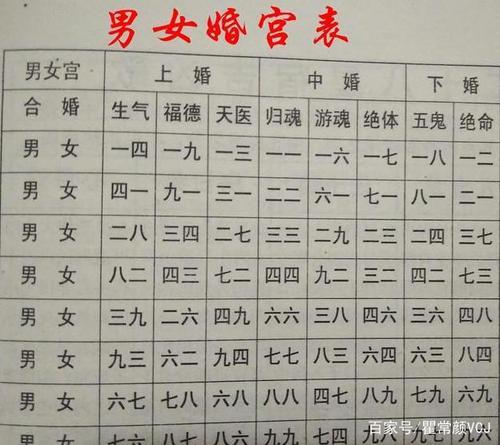 男女婚宫表
男女宫 上婚 中婚 下婚
合婚 生气 福德 天医 归魂 游魂 绝体 五鬼 绝命
男女 一四 一九 一三 一一 一六 一七 一八 一二
男女 四一 九一 三一 二二 六一 七一 八一 二一
男女 二八 三四 二七 三三 二九 二三 二四 三七
男女 八二 四三 七二 四四 九二 三二 四二 七三
男女 三九 二六 四九 六六 三八 四六 三六 四八
男女 九三 六二 九四 七七 八三 六四 六三 八四
男女 六七 七八 六八 八八 四七 八九 七九 六九
百家号/瞿常颜VOJ